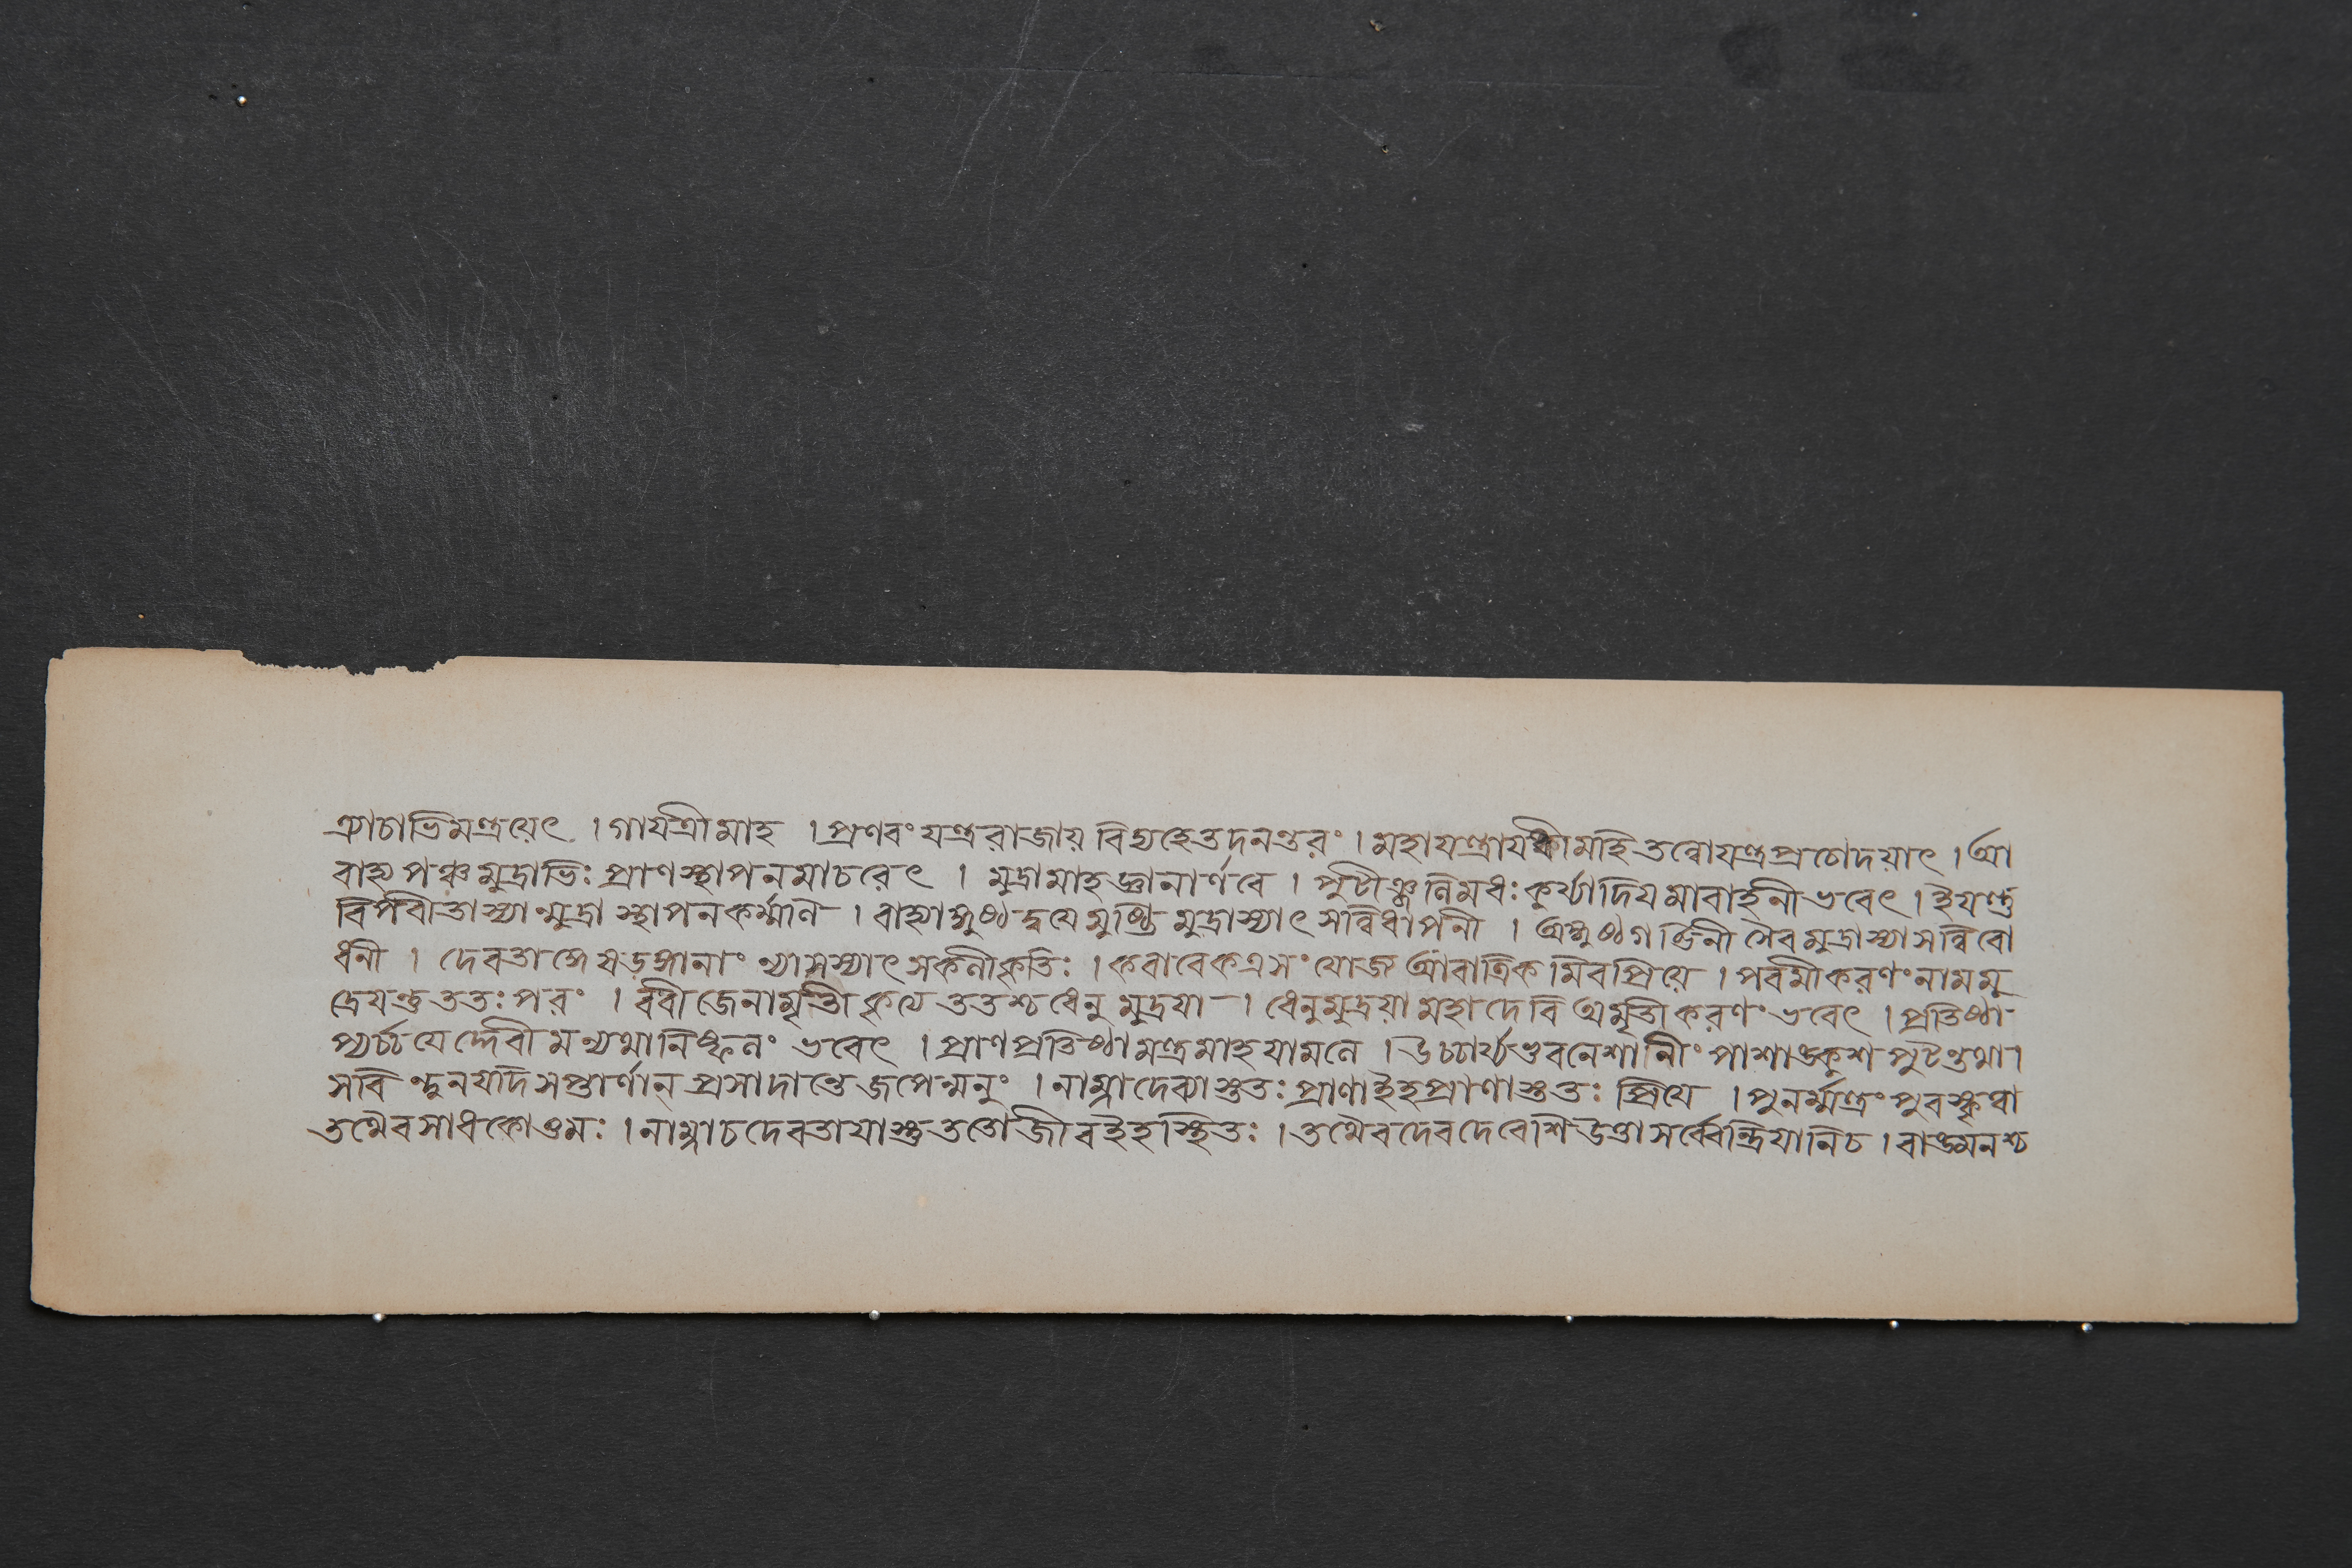 ঞাচাভিমন্ত্রয়েৎ । গায়ত্রীমাহ । প্রণবং যন্ত্ররাজায় বিদ্মহে তদনন্তরং । মহাযন্ত্রায ধীমহি তন্নোযন্ত্রপ্রচোদয়াৎ । আ
বাহ্য পঞ্চ মুদ্রাভিঃ প্রাণস্থাপনমাচরেৎ । মুদ্রামাহ জ্ঞানার্ণবে । পুটাঞ্জলিমধঃ কুর্য্যাদিয়মাবাহনী ভবেৎ । ইয়ন্তু
বিপবীতাস্যান্মুদ্রা স্থাপনকর্ম্মণি । বাহ্যাঙ্গুষ্ঠদ্বযে মুষ্টি মুদ্রাস্যাৎ সন্নিধাপনী । অঙ্গুষ্ঠগর্ভিনী সৈব মুদ্রাস্যা সন্নিবো
ধনী । দেবতাঙ্গে ষড়ঙ্গানাং ন্যাসস্যাৎ সকলীকৃতিঃ । কবাবেকএ সংযোজ আবাত্রিকমিব প্রিয়ে । পবমীকরণং নাম মু
দ্রেযন্তু ততঃ পরং । ববীজেনামৃতীকৃত্যে ততশ্চ ধেনু মুদ্রযা । ধেনুমুদ্রয়া মহাদেবি অমৃতীকরণং ভবেৎ । প্রতিষ্ঠা
প্যর্চ্চযেদ্দেবীমন্যথা নিষ্ফলং ভবেৎ । প্রাণপ্রতিষ্ঠামন্ত্রমাহ যামলে । উচ্চার্য্য ভুবনেশানীং পাশাঙ্কুশপুটন্তথা ।
সবিন্দুন যাদি সপ্তার্ণান্ প্রসাদান্তে জপেন্মনুং । নাম্নাদেব্যাস্তুতঃ প্রাণা ইহ প্রাণাস্তুতঃ প্রিযে । পুনর্ম্মন্ত্রং পুবস্কৃত্বা
তথৈব সাধকোওমঃ । নাম্নাচ দেবতাযাস্তু ততো জীব ইহ স্থিতঃ । তথৈব দেবদেবেশি উক্তা সর্ব্বেবন্দ্রিযানি চ । বাঙ্মনশ্চ